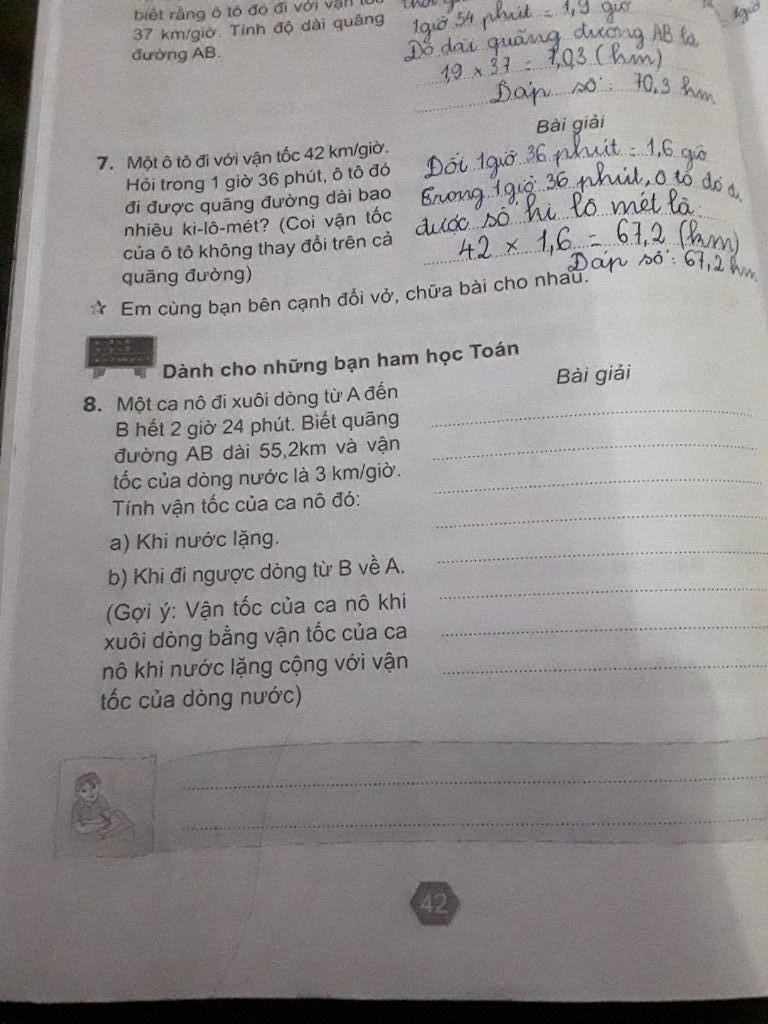 biết rằng ô tô đó đi với vận tốc
37 km/giờ. Tính độ dài quãng
đường AB.
1giờ 54 phút = 1,9 giờ
Độ dài quãng đường AB là
1,9 x 37 = 7,03 (km)
Đáp số: 70,3 km
7. Một ô tô đi với vận tốc 42 km/giờ.
Hỏi trong 1 giờ 36 phút, ô tô đó
đi được quãng đường dài bao
nhiêu ki-lô-mét? (Coi vận tốc
của ô tô không thay đổi trên cả
quãng đường)
Bài giải
Đổi 1giờ 36 phút = 1,6 giờ
Trong 1giờ 36 phút, ô tô đó đi
được số ki lô mét là
42 x 1,6 = 67,2 (km)
Đáp số: 67,2 km
Em cùng bạn bên cạnh đổi vở, chữa bài cho nhau.
Dành cho những bạn ham học Toán
8. Một ca nô đi xuôi dòng từ A đến
B hết 2 giờ 24 phút. Biết quãng
đường AB dài 55,2km và vận
tốc của dòng nước là 3 km/giờ.
Tính vận tốc của ca nô đó:
a) Khi nước lặng.
b) Khi đi ngược dòng từ B về A.
(Gợi ý: Vận tốc của ca nô khi
xuôi dòng bằng vận tốc của ca
nô khi nước lặng cộng với vận
tốc của dòng nước)
Bài giải
42